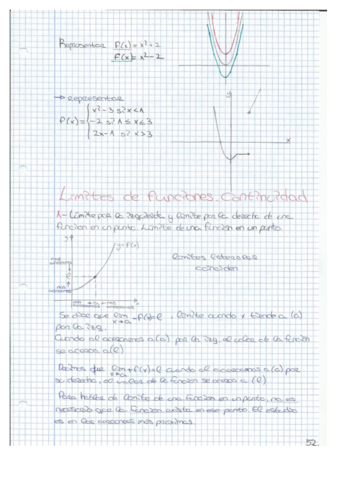 Representar f(x) = x² + 2
f(x) = x² - 2
→ representar
f(x) = { x² - 3 si x < 1
-2 si 1 ≤ x ≤ 3
2x - 1 si x > 3
x
Límites de funciones. Continuidad
1- Límite por la izquierda y límite por la derecha de una
función en un punto. Límite de una función en un punto.
y = f(x)
límites laterales
coinciden
Se dice que lim f(x) = l, límite cuando x tiende a (a)
x→a⁻
por la izq.
Cuando al acercarnos a (a) por la izq. el valor de la función
se acerca a (l)
Decimos que lim f(x) = l cuando al acercarnos a (a) por
x→a⁺
su derecha, el valor de la función se acerca a (l)
Para hablar de límite de una función en un punto, no es
necesario que la función exista en ese punto. El estudio
es en las más próximas.
52